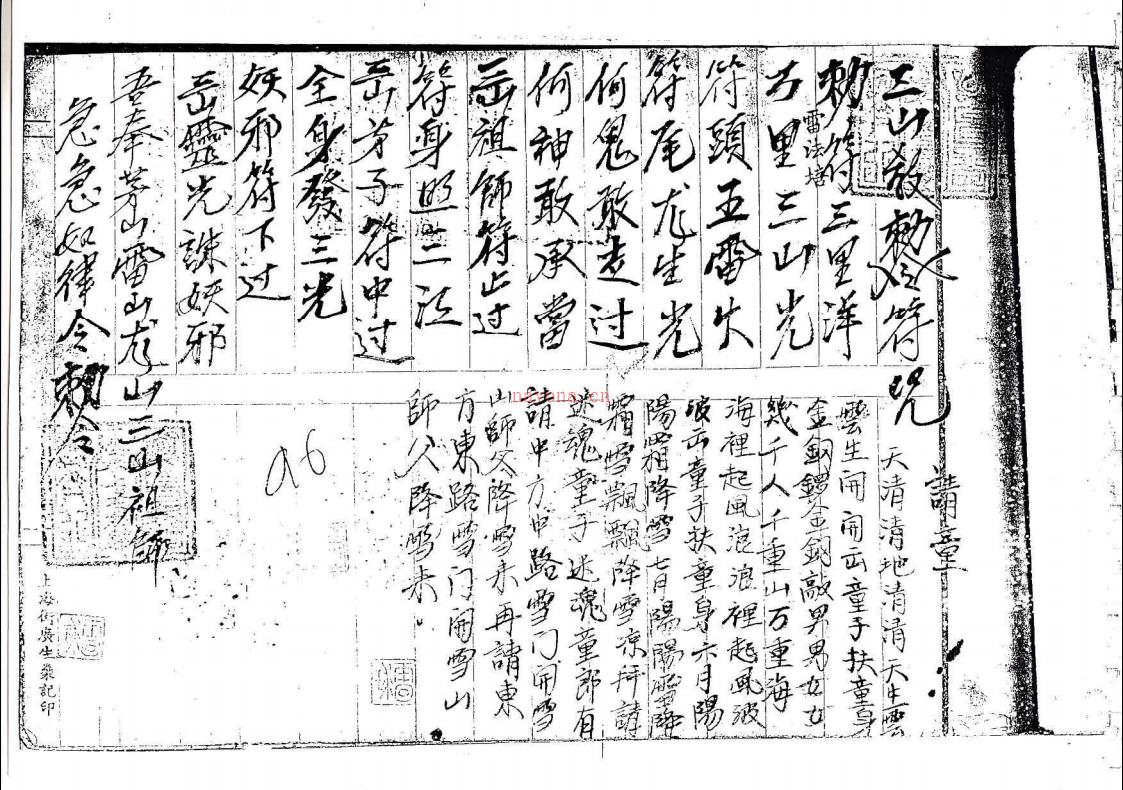 三山教勅令符咒
勅符三里洋
雷法塔
方里三山光
符頭五雷火
符尾尨生光
何鬼敢走过
何神敢承當
岳祖師符止过
符身照三江
岳弟子符中过
全身發三光
妖邪符下过
岳靈光誅妖邪
吾奉茅山雷山尨山三山祖師
急急如律令勅令
請童
天清清地清清天生雲
雲生開開岳童子扶童身
金鈅鑼金鈅敲男男女女
幾千人千重山万重海
海裡起風浪浪裡起風波
波岳童子扶童身六月陽
陽霜降雪七月陽陽雪降
霜雪飄飄降雪凉拜請
迷魂童子迷魂童郎有
請中方中路雪门開雪
山師父降雪来再請東
方東路雪门開雪山
師父降雪来
a6
nayona.cn
上海街廣生榮記印